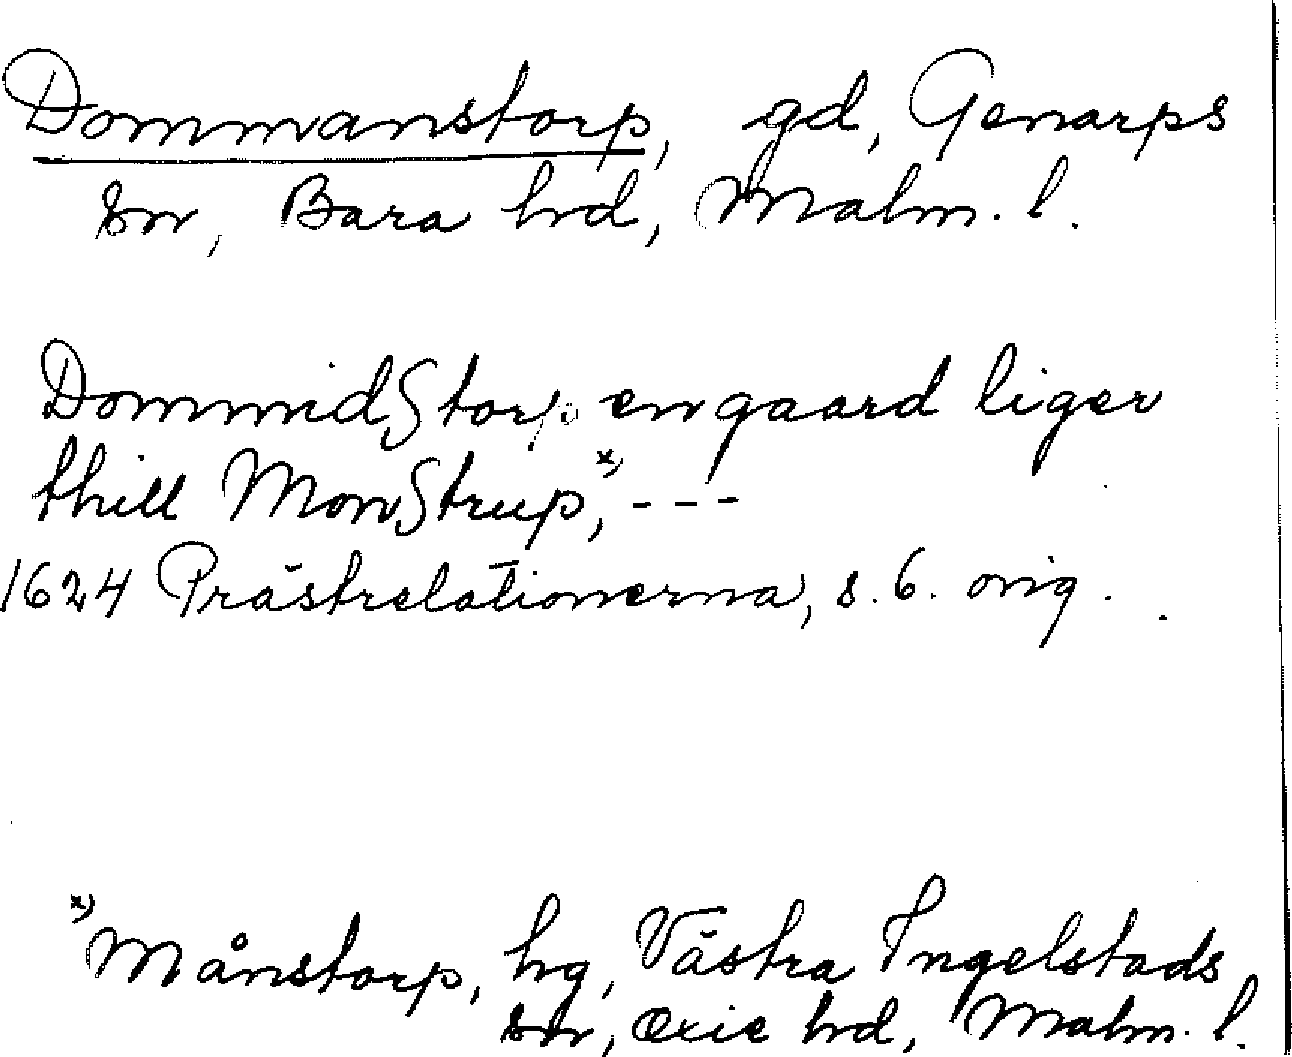 Dommanstorp, gd, Genarps
sn, Bara hrd, Malm. l.
DommidStorp en gaard liger
thill MonStrup,x) ---
1624 Prästrelationerna, s. 6. orig.
x) Månstorp, hg, Västra Ingelstads
sn, Oxie hrd, Malm. l.